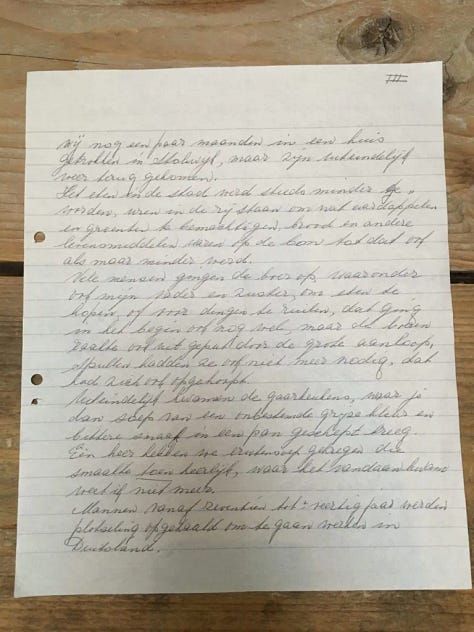 III
wij nog een paar maanden in een huis
getrokken in Stolwijk, maar zijn uiteindelijk
weer terug gekomen.
Het eten in de stad werd steeds minder ge"
worden, uren in de rij staan om wat aardappelen
en groenten te bemachtigen, brood en andere
levensmiddelen waren op de bon tot dat ook
als maar minder werd.
Vele mensen gingen de boer op, waaronder
ook mijn vader en zuster, om eten te
kopen, of voor dingen te ruilen, dat ging
in het begin ook nog wel, maar de boeren
raakte ook uit geput door de grote aanloop,
spullen hadden ze ook niet meer nodig, dat
had zich ook opgehoopt.
Uiteindelijk kwamen de gaarkeukens, waar je
dan soep van een onbestemde gryze kleur en
bittere smaak in een pan geschept kreeg.
Eén keer hebben we erwtensoep gekregen die
smaakte toen heerlijk, waar het vandaan kwam
weet ik niet meer.
Mannen vanaf zeventien tot veertig jaar werden
plotseling opgehaald om te gaan werken in
Duitsland.